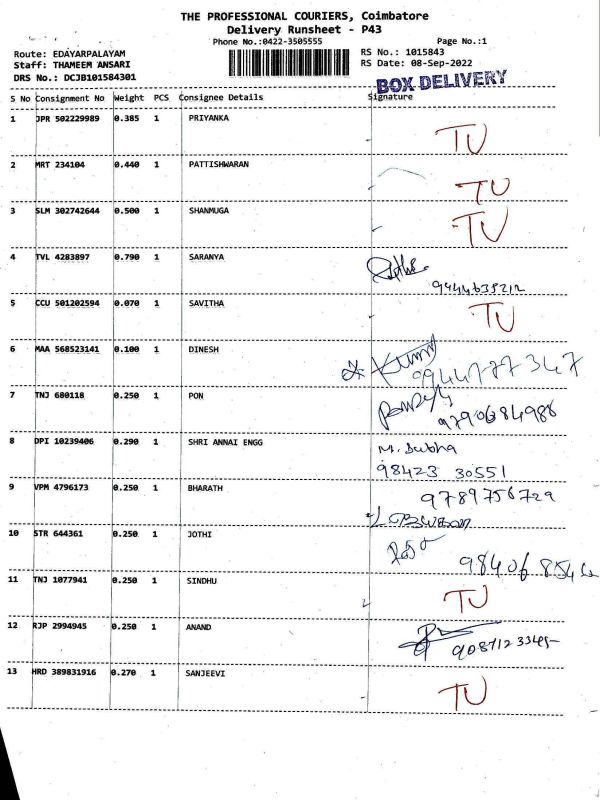 THE PROFESSIONAL COURIERS, Coimbatore
Delivery Runsheet - P43
Phone No.:0422-3505555 Page No.:1
Route: EDAYARPALAYAM RS No.: 1015843
Staff: THAMEEM ANSARI RS Date: 08-Sep-2022
DRS No.: DCJB101584301
BOX DELIVERY
S No Consignment No Weight PCS Consignee Details Signature
1 JPR 502229989 0.385 1 PRIYANKA
TU
2 MRT 234104 0.440 1 PATTISHWARAN
TU
3 SLM 302742644 0.500 1 SHANMUGA
TU
4 TVL 4283897 0.790 1 SARANYA
5 CCU 501202594 0.070 1 SAVITHA
TU
6 MAA 568523141 0.100 1 DINESH
7 TNJ 680118 0.250 1 PON
9790684986
8 DPI 10239406 0.290 1 SHRI ANNAI ENGG
M. Subha
98423 30551
9 VPM 4796173 0.250 1 BHARATH
9789756729
10 STR 644361 0.250 1 JOTHI
11 TNJ 1077941 0.250 1 SINDHU
TU
12 RJP 2994945 0.250 1 ANAND
13 HRD 389831916 0.270 1 SANJEEVI
TU